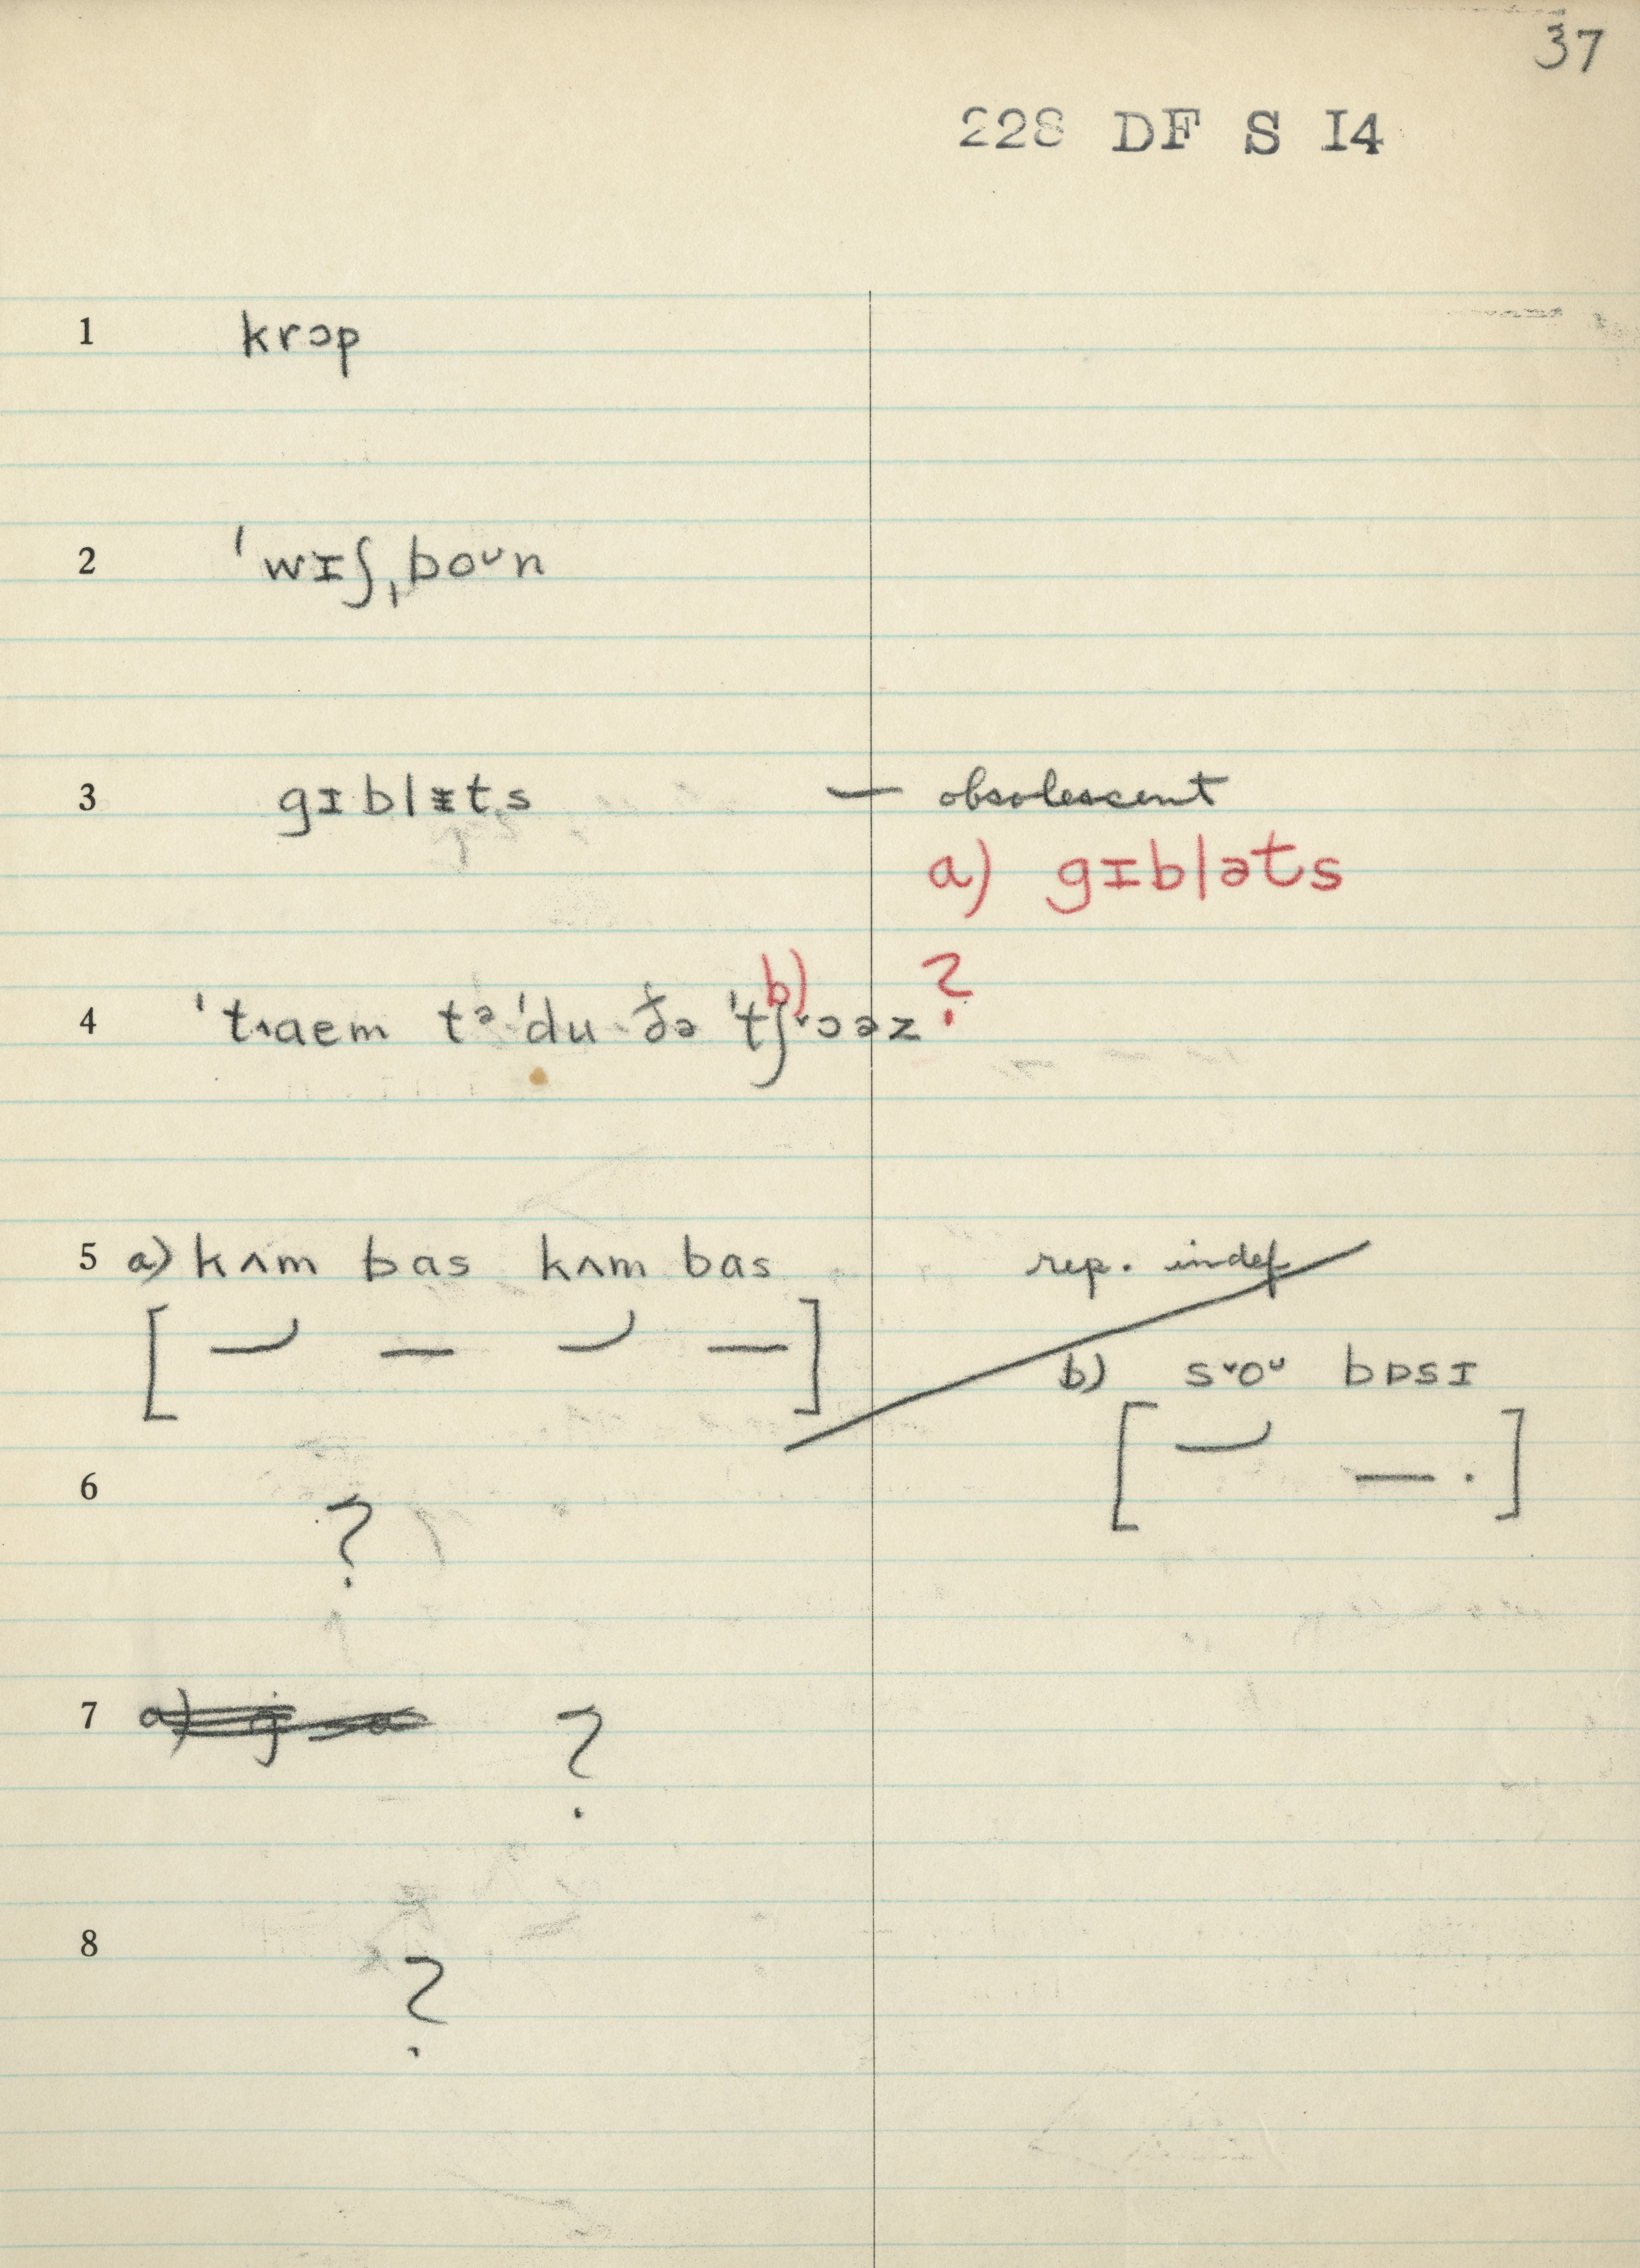 37
228 DF S I4
1 krɔp
2 ˈwɪʃˌboᴜn
3 gɪblᵻts — obsolescent
a) gɪbləts
b) ?
4 ˈt˄aem tə ˈdu ðə ˈtʃ˅ɔəz
5 a) kʌm bas kʌm bas rep. indef
b) s˅oᴜ bɒsɪ
6 ?
7 ?
8 ?